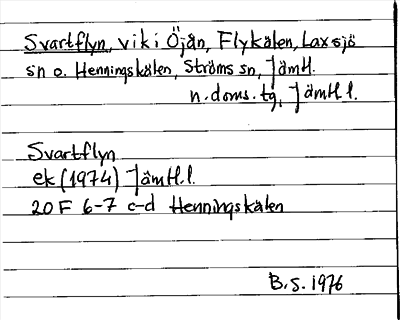 Svartflyn, vik i Öjån, Flykälen, Laxsjö
sn o. Henningskälen, Ströms sn, Jämtl.
n. doms. tg, Jämtl. l.
Svartflyn
ek (1974) Jämtl. l.
20 F 6-7 c-d Henningskälen
B.S. 1976